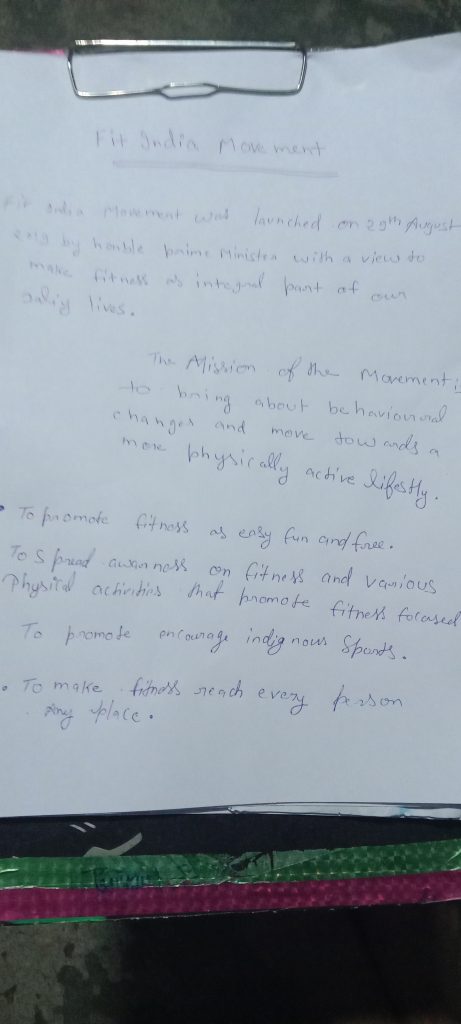 Fit India Movement
Fit India Movement was launched on 29th August
2019 by honble prime Minister with a view to
make fitness as integral part of our
daliy lives.
The Mission of the Movement is
to bring about behavioural
changes and move towards a
more physically active lifestly.
• To promote fitness as easy fun and free.
To Spread awarness on fitness and various
Physical activities that promote fitness focused
To promote encourage indignous Sports.
• To make fitness reach every person
Any place.